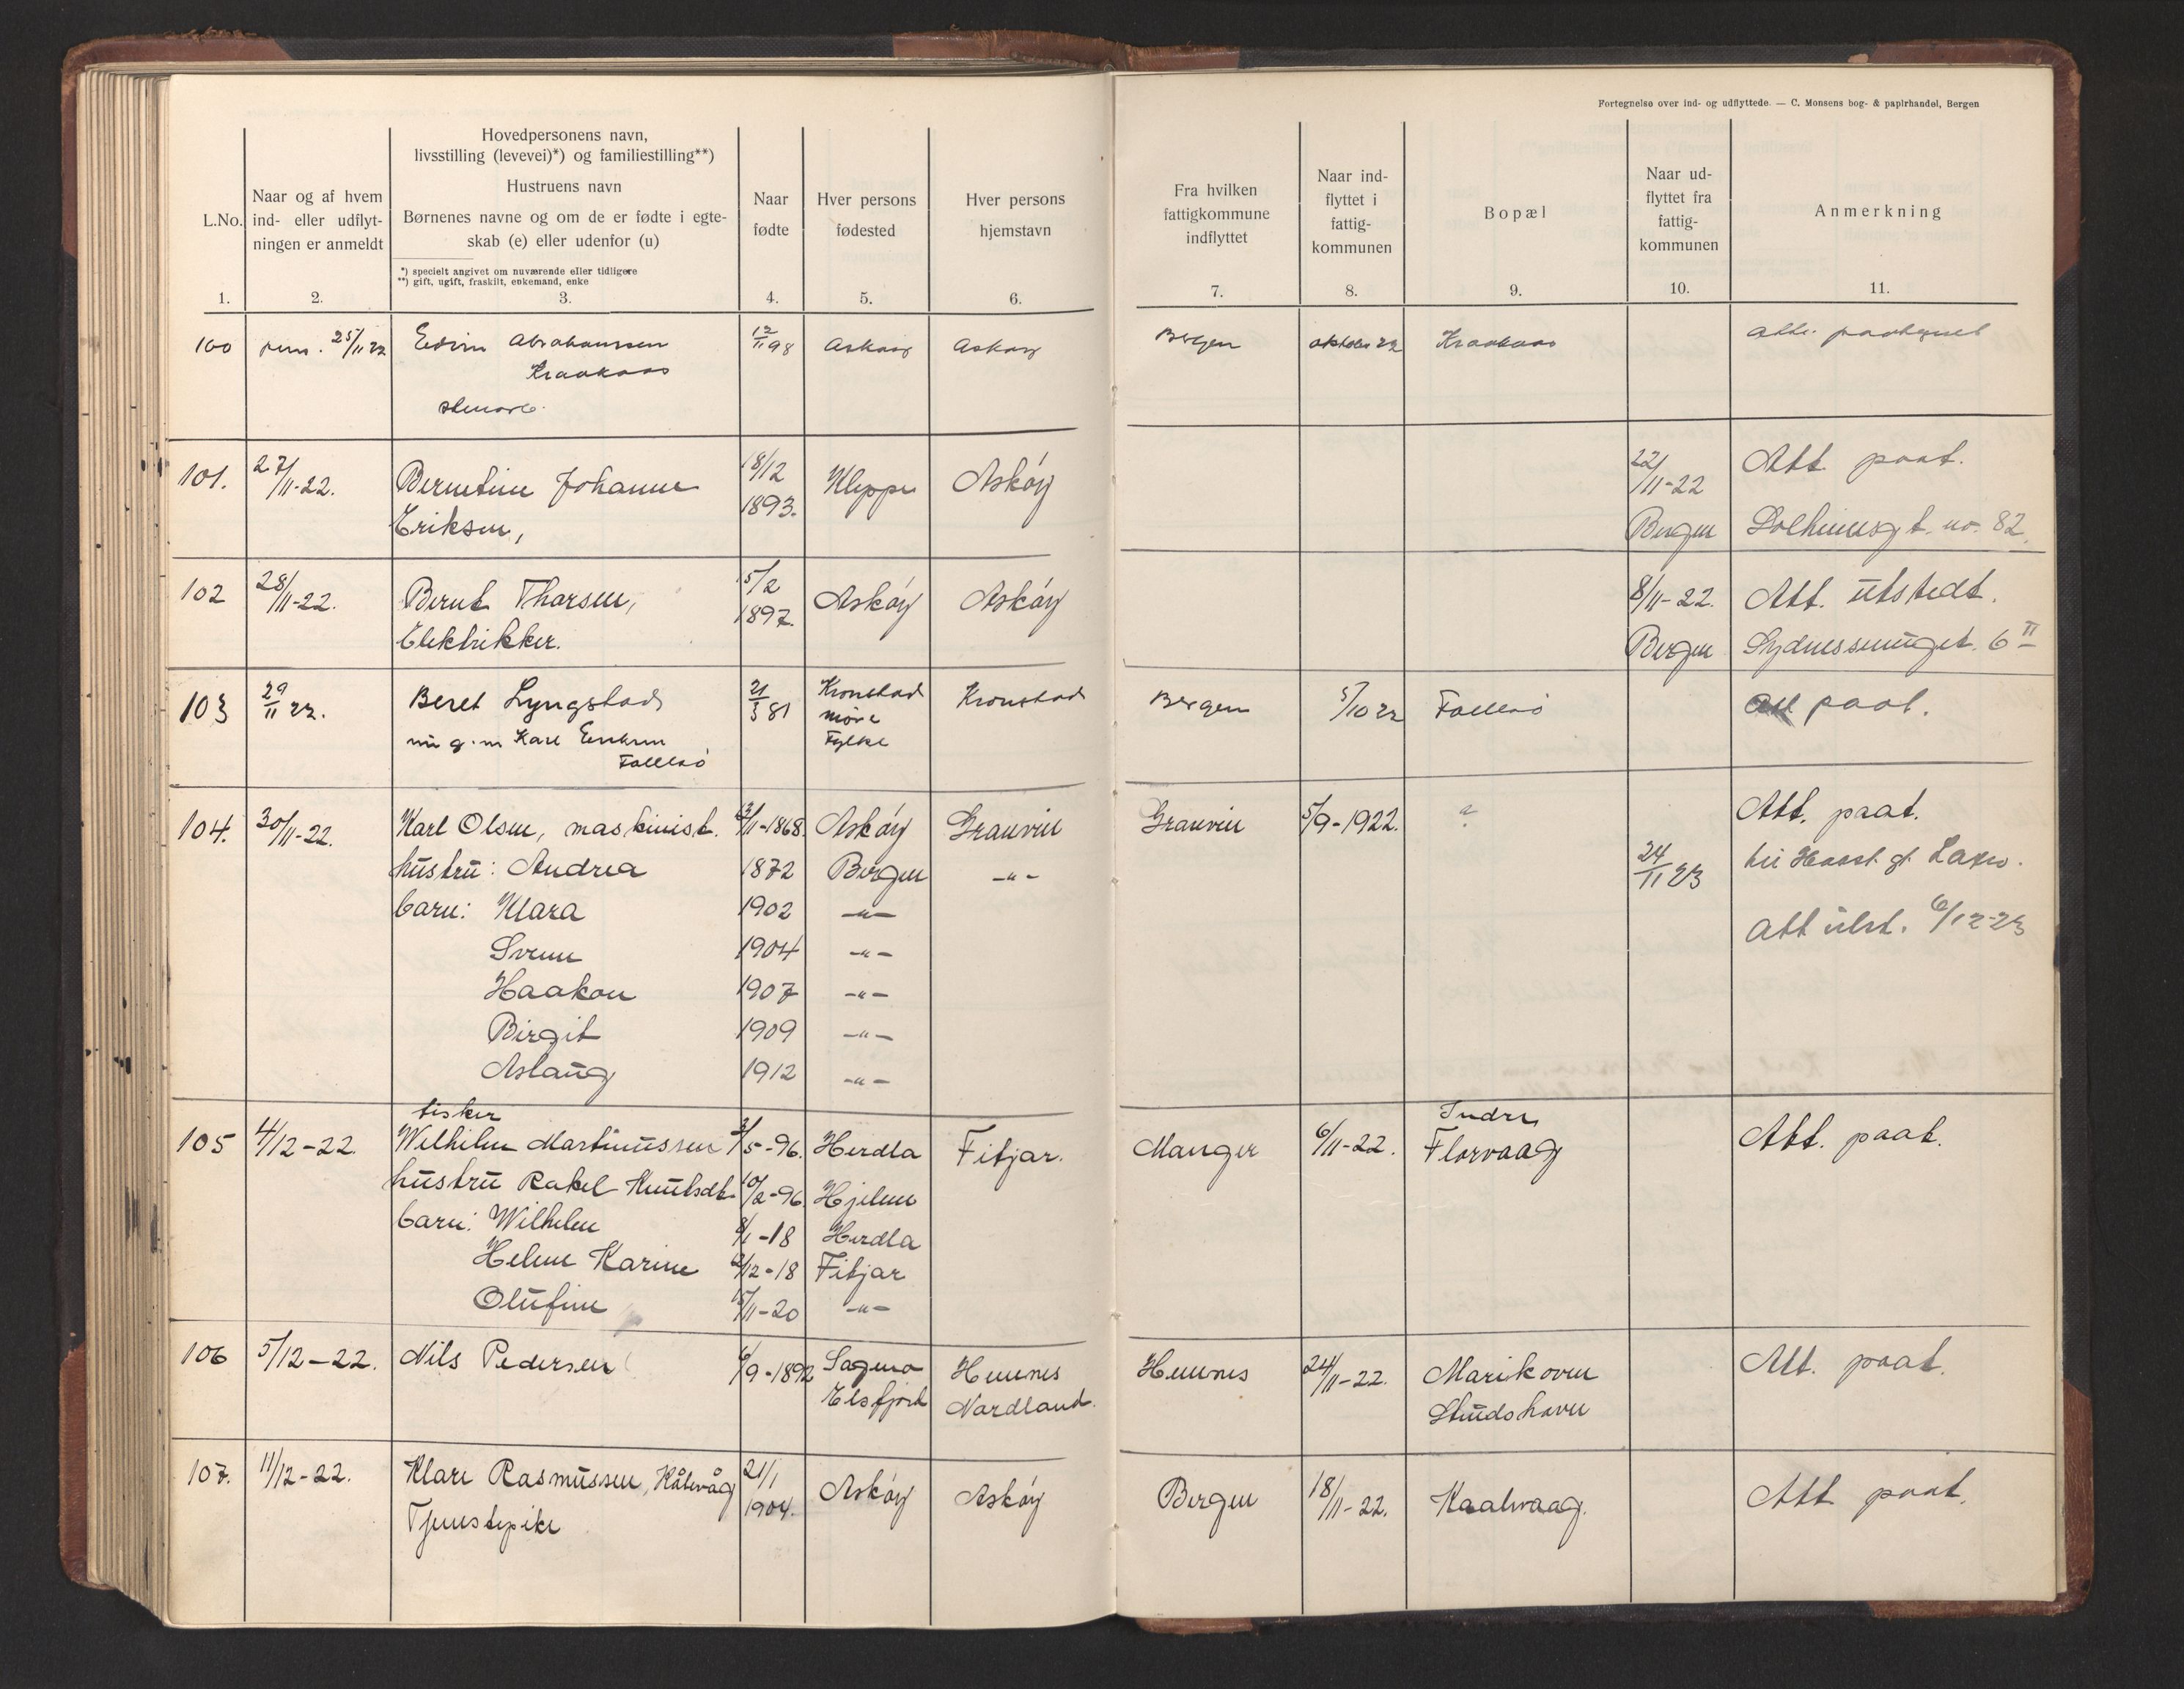 Fortegnelse over ind- og udflyttede. — C. Monsens bog- & papirhandel, Bergen
L.No.
Naar og af hvem
ind- eller udflyt-
ningen er anmeldt
Hovedpersonens navn,
livsstilling (levevei)*) og familiestilling**)
Hustruens navn
Børnenes navne og om de er fødte i egte-
skab (e) eller udenfor (u)
*) specielt angivet om nuværende eller tidligere
**) gift, ugift, fraskilt, enkemand, enke
Naar
fødte
Hver persons
fødested
Hver persons
hjemstavn
Fra hvilken
fattigkommune
indflyttet
Naar ind-
flyttet i
fattig-
kommunen
Bopæl
Naar ud-
flyttet fra
fattig-
kommunen
Anmerkning
1. 2. 3. 4. 5. 6. 7. 8. 9. 10. 11.
100 25/11 22 Edvin Abrahamsen 12/11 98 Askøy Askøy Bergen oktober 22 Kraakaas
Kraakaas
101. 27/11-22. Berntine Johanne 18/12 Kleppe Askøy 22/11-22 Att. paat.
Eriksen, 1893. Bergen Solheimsgt. no. 82.
102 28/11-22. Bernt Thorsen, 15/2 Askøy Askøy 8/11-22. Att. utstedt.
Elektrikker. 1897. Bergen Sydnessmuget. 6 II
103 29/11 22. Beret Lyngstad 21/3 81 Kronstad Kronstad Bergen 5/10 22 Follesø Att paat.
nu g. m Karl Møre
Follesø Fylke
104. 30/11-22. Karl Olsen, maskinist. /11-1868. Askøy Granvin Granvin 5/9-1922. ? Att. paat.
hustru: Andrea 1872 Bergen -"- 24/11 23
barn: Klara 1902 -"- Att utst. 6/12-23
Svenn 1904 -"-
Haakon 1907 -"-
Birgit 1909 -"-
Aslaug 1912 -"-
fisker Indre
105 4/12-22. Wilhelm Martinussen /5-96. Herdla Fitjar. Manger 6/11-22. Florvaag Att. paat.
hustru Rakel Knutsdt. 10/2-96. Hjelme
barn: Wilhelm 8/1-18 Herdla
Helene Karine /12-18 Fitjar
Olufine 15/11-20 -"-
106 5/12-22. Nils Pedersen 6/9-1892 Hemnes Hemnes 24/11-22. Marikoven Att. paat.
Elsfjord Nordland. Skudshavn
107. 11/12-22. Klara Rasmussen, Kålvåg 21/1 Askøy Askøy Bergen 18/11-22. Kaalvaag. Att paat.
Tjenestepike 1904.